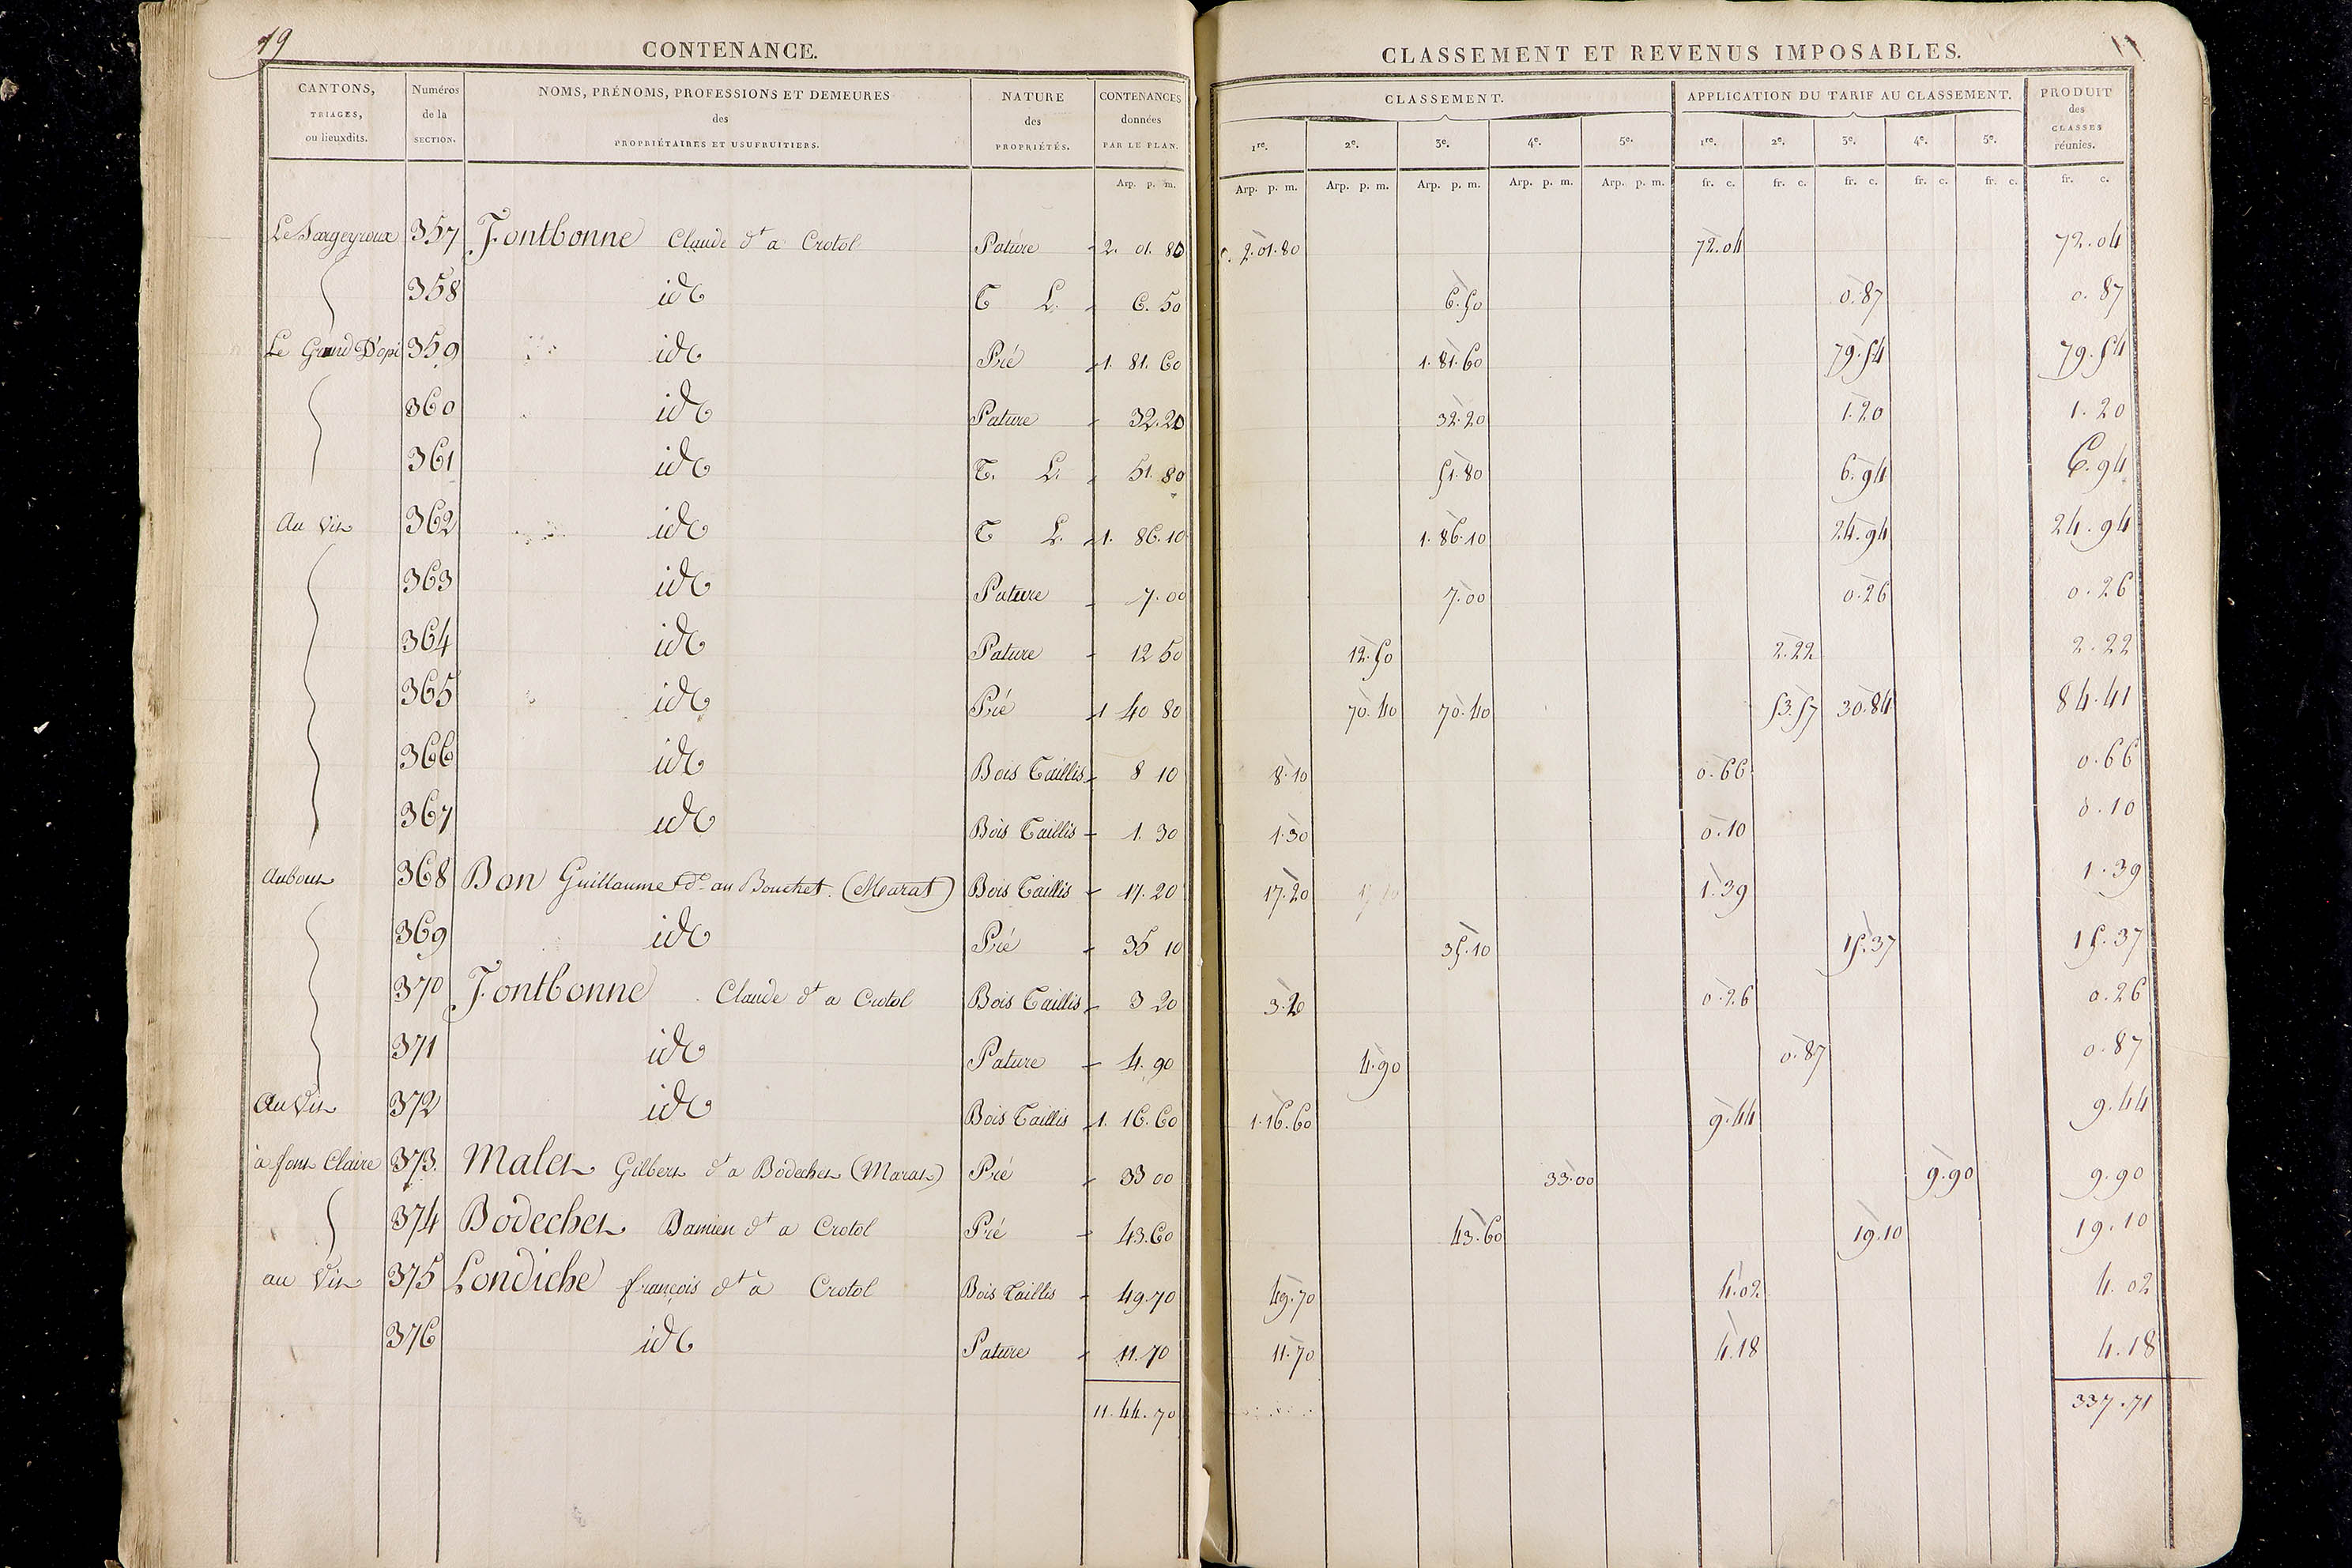 19
CONTENANCE.
CANTONS, TRIAGES, ou lieuxdits. | Numéros de la SECTION. | NOMS, PRÉNOMS, PROFESSIONS ET DEMEURES des PROPRIÉTAIRES ET USUFRUITIERS. | NATURE des PROPRIÉTÉS. | CONTENANCES données PAR LE PLAN.
Arp. p. m.
357 Fontbonne Claude dt a Crotol Pature 2. 01. 80
358 id T L. 6. 50
Le Grand D'opi 359 id Pré 1. 81. 60
360 id Pature 32.20
361 id T. L. 51. 80
Au Vit 362 id T L. 1. 86.10
363 id Pature 7.00
364 id Pature 12 50
365 id Pré 1 40 80
366 id Bois Taillis 8 10
367 id Bois Taillis 1. 30
Aubout 368 Bon Guillaume dt au Bouchet. (Marat) Bois Taillis 17. 20
369 id Pré 35 10
370 Fontbonne Claude dt a Crotol Bois Taillis 3 20
371 id Pature 4. 90
Au Vit 372 id Bois Taillis 1. 16. 60
à font Claire 373. Malet Gilbert dt a Bodechet (Marat) Pré 33 00
374 Bodechet Damien dt a Crotol Pré 43.60
au Vit 375 Londiche françois dt à Crotol Bois Taillis 49.70
376 id Pature 11.70
11.44.70
CLASSEMENT ET REVENUS IMPOSABLES.
CLASSEMENT. | APPLICATION DU TARIF AU CLASSEMENT. | PRODUIT des CLASSES réunies.
1re. 2e. 3e. 4e. 5e. 1re. 2e. 3e. 4e. 5e.
Arp. p. m. Arp. p. m. Arp. p. m. Arp. p. m. Arp. p. m. fr. c. fr. c. fr. c. fr. c. fr. c. fr. c.
2.01.80 72.04 72.04
6.50 0.87 0.87
1.81.60 79.54 79.54
32.20 1.20 1.20
51.80 6.94 6.94
1.86.10 24.94 24.94
7.00 0.26 0.26
12.50 2.22 2.22
70.40 70.40 53.57 30.84 84.41
8.10 0.66 0.66
1.30 0.10 0.10
17.20 1.39 1.39
35.10 15.37 15.37
3.20 0.26 0.26
4.90 0.87 0.87
1.16.60 9.44 9.44
33.00 9.90 9.90
43.60 19.10 19.10
49.70 4.02 4.02
11.70 4.18 4.18
337.71